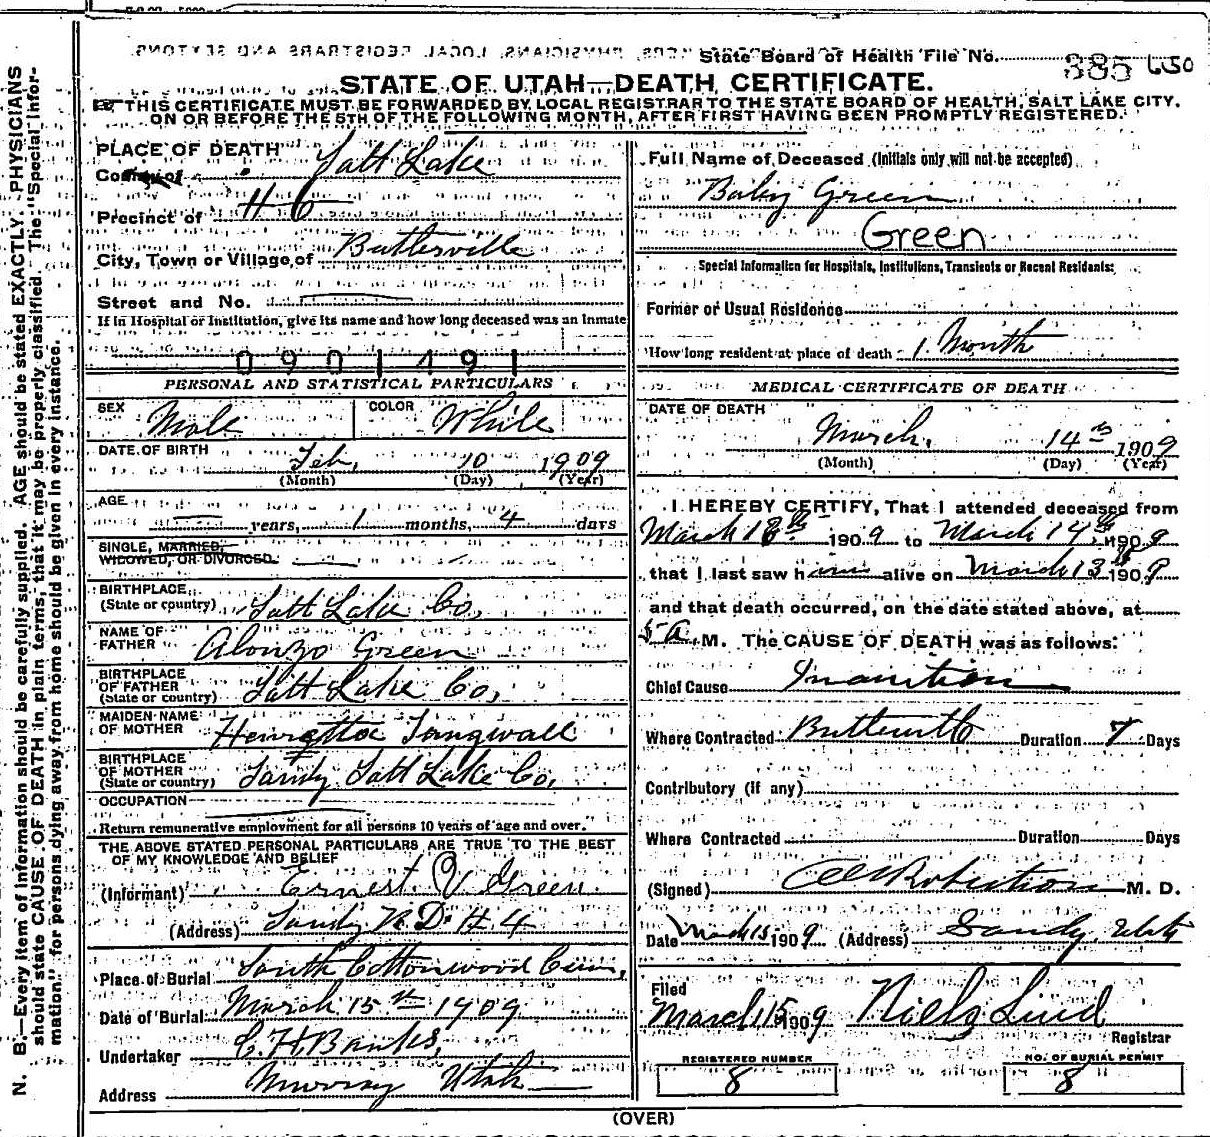 State Board of Health File No. 385 650
STATE OF UTAH—DEATH CERTIFICATE.
THIS CERTIFICATE MUST BE FORWARDED BY LOCAL REGISTRAR TO THE STATE BOARD OF HEALTH, SALT LAKE CITY.
ON OR BEFORE THE 5TH OF THE FOLLOWING MONTH, AFTER FIRST HAVING BEEN PROMPTLY REGISTERED.
N. B.—Every item of information should be carefully supplied. AGE should be stated EXACTLY. PHYSICIANS
should state CAUSE OF DEATH in plain terms, that it may be properly classified. The "Special Infor-
mation" for persons dying away from home should be given in every instance.
PLACE OF DEATH
County of Salt Lake
Precinct of
City, Town or Village of Butlerville
Street and No.
If in Hospital or Institution, give its name and how long deceased was an Inmate
0901491
PERSONAL AND STATISTICAL PARTICULARS
SEX Male COLOR White
DATE OF BIRTH Feb, 10 1909
(Month) (Day) (Year)
AGE
years, 1 months, 4 days
SINGLE, MARRIED,
WIDOWED, OR DIVORCED.
BIRTHPLACE
(State or country) Salt Lake Co,
NAME OF
FATHER Alonzo Green
BIRTHPLACE
OF FATHER
(State or country) Salt Lake Co,
MAIDEN NAME
OF MOTHER Henrietta Tangwall
BIRTHPLACE
OF MOTHER
(State or country) Sandy Salt Lake Co,
OCCUPATION
Return remunerative employment for all persons 10 years of age and over.
THE ABOVE STATED PERSONAL PARTICULARS ARE TRUE TO THE BEST
OF MY KNOWLEDGE AND BELIEF
(Informant) Ernest V Green
(Address) Sandy R.D. # 4
Place of Burial South Cottonwood Cem,
Date of Burial March 15th 1909
Undertaker
Address Murray Utah
Full Name of Deceased (Initials only will not be accepted)
Baby Green
Green
Special Information for Hospitals, Institutions, Transients or Recent Residents:
Former or Usual Residence
How long resident at place of death 1 Month
MEDICAL CERTIFICATE OF DEATH
DATE OF DEATH
March, 14th 1909
(Month) (Day) (Year)
I HEREBY CERTIFY, That I attended deceased from
March 1909 to March 14th, 1909
that I last saw him alive on March 13th 1909
and that death occurred, on the date stated above, at
5 a. M. The CAUSE OF DEATH was as follows:
Chief Cause Inanition
Where Contracted Duration 7 Days
Contributory (if any)
Where Contracted Duration Days
(Signed) Robertson M. D.
Date March 15 1909 (Address) Sandy, Utah
Filed
March 15 1909 Niels Lind
Registrar
REGISTERED NUMBER
8
NO. OF BURIAL PERMIT
8
(OVER)